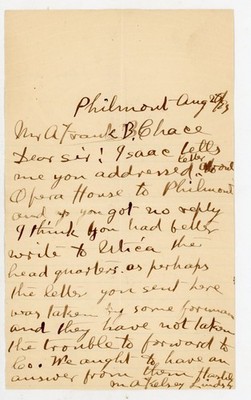 Philmont Aug
Mr A Frank B. Chace
Dear Sir! Isaac tells
me you addressed letter about
Opera House to Philmont
and you got no reply
I think you had better
write to Utica the
head quarters. as perhaps
the letter you sent here
was taken by some foreman
and they have not taken
the trouble to forward to
Co. We aught to have an
answer from them
M A Kelsey